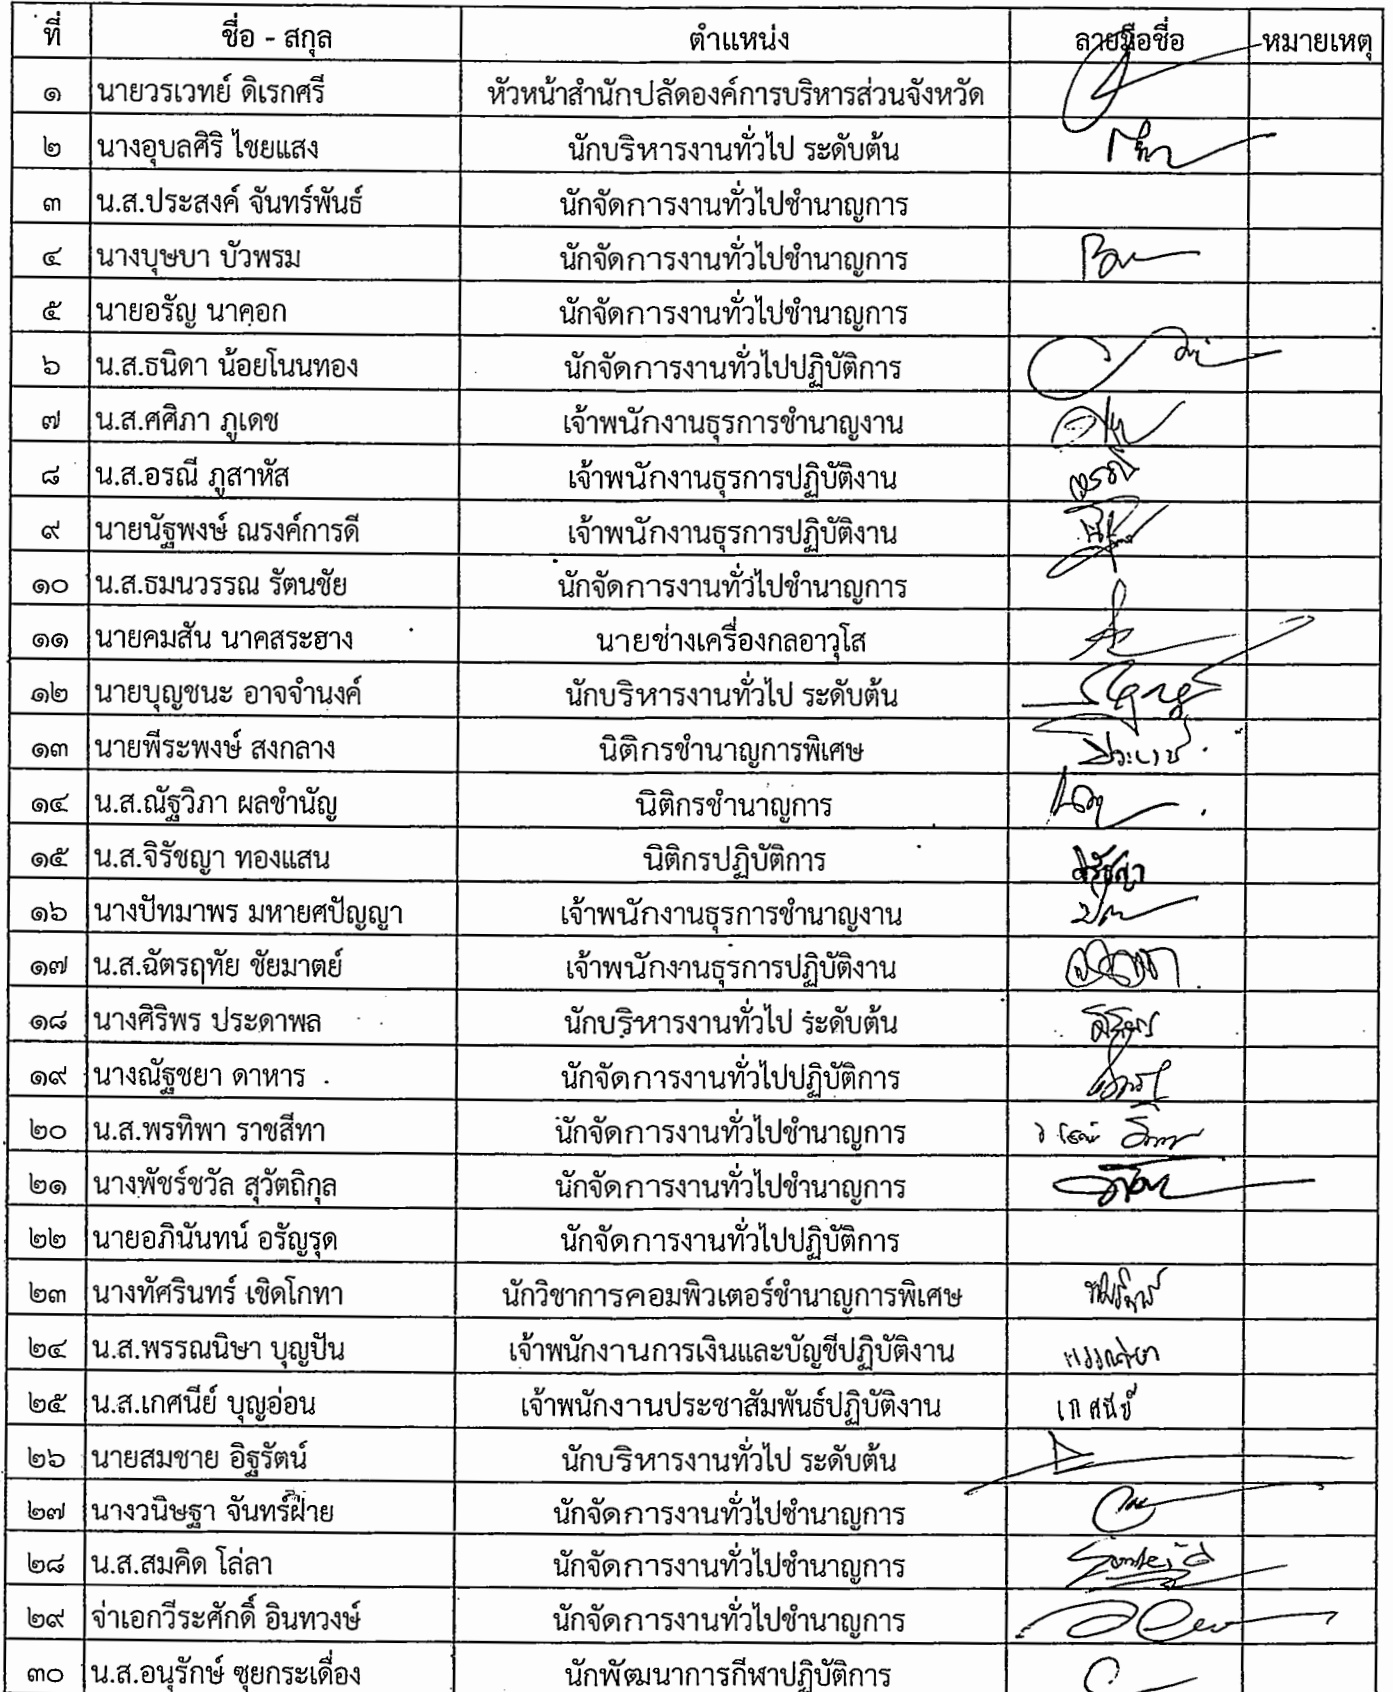 ที่ ชื่อ - สกุล ตำแหน่ง ลายมือชื่อ หมายเหตุ
๑ นายวรเวทย์ ดิเรกศรี หัวหน้าสำนักปลัดองค์การบริหารส่วนจังหวัด
๒ นางอุบลศิริ ไชยแสง นักบริหารงานทั่วไป ระดับต้น
๓ น.ส.ประสงค์ จันทร์พันธ์ นักจัดการงานทั่วไปชำนาญการ
๔ นางบุษบา บัวพรม นักจัดการงานทั่วไปชำนาญการ
๕ นายอรัญ นาคอก นักจัดการงานทั่วไปชำนาญการ
๖ น.ส.ธนิดา น้อยโนนทอง นักจัดการงานทั่วไปปฏิบัติการ
๗ น.ส.ศศิภา ภูเดช เจ้าพนักงานธุรการชำนาญงาน
๘ น.ส.อรณี ภูสาหัส เจ้าพนักงานธุรการปฏิบัติงาน อรณี
๙ นายนัฐพงษ์ ณรงค์การดี เจ้าพนักงานธุรการปฏิบัติงาน
๑๐ น.ส.ธมนวรรณ รัตนชัย นักจัดการงานทั่วไปชำนาญการ
๑๑ นายคมสัน นาคสระฮาง นายช่างเครื่องกลอาวุโส
๑๒ นายบุญชนะ อาจจำนงค์ นักบริหารงานทั่วไป ระดับต้น
๑๓ นายพีระพงษ์ สงกลาง นิติกรชำนาญการพิเศษ
๑๔ น.ส.ณัฐวิภา ผลชำนัญ นิติกรชำนาญการ
๑๕ น.ส.จิรัชญา ทองแสน นิติกรปฏิบัติการ จิรัชญา
๑๖ นางปัทมาพร มหายศปัญญา เจ้าพนักงานธุรการชำนาญงาน
๑๗ น.ส.ฉัตรฤทัย ชัยมาตย์ เจ้าพนักงานธุรการปฏิบัติงาน
๑๘ นางศิริพร ประดาพล นักบริหารงานทั่วไป ระดับต้น
๑๙ นางณัฐชยา ดาหาร นักจัดการงานทั่วไปปฏิบัติการ
๒๐ น.ส.พรทิพา ราชสีทา นักจัดการงานทั่วไปชำนาญการ
๒๑ นางพัชร์ชวัล สุวัตถิกุล นักจัดการงานทั่วไปชำนาญการ
๒๒ นายอภินันทน์ อรัญรุด นักจัดการงานทั่วไปปฏิบัติการ
๒๓ นางทัศรินทร์ เชิดโกทา นักวิชาการคอมพิวเตอร์ชำนาญการพิเศษ
๒๔ น.ส.พรรณนิษา บุญปัน เจ้าพนักงานการเงินและบัญชีปฏิบัติงาน
๒๕ น.ส.เกศนีย์ บุญอ่อน เจ้าพนักงานประชาสัมพันธ์ปฏิบัติงาน เกศนีย์
๒๖ นายสมชาย อิฐรัตน์ นักบริหารงานทั่วไป ระดับต้น
๒๗ นางวนิษฐา จันทร์ฝ่าย นักจัดการงานทั่วไปชำนาญการ
๒๘ น.ส.สมคิด โล่ลา นักจัดการงานทั่วไปชำนาญการ
๒๙ จ่าเอกวีระศักดิ์ อินทวงษ์ นักจัดการงานทั่วไปชำนาญการ
๓๐ น.ส.อนุรักษ์ ซุยกระเดื่อง นักพัฒนาการกีฬาปฏิบัติการ